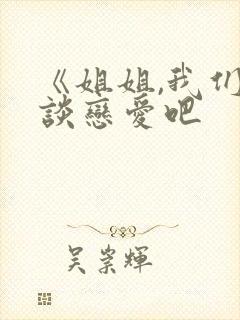 《姐姐,我们
談戀愛吧
吴崇輝